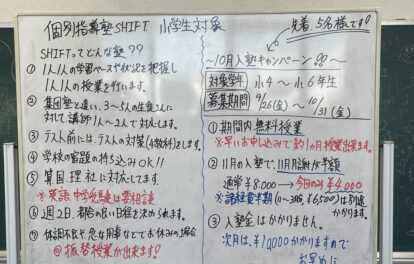 個別指導塾SHIFT 小学生対象
SHIFTってどんな塾??
① 1人1人の学習ペースや状況を把握し
1人1人の授業を行います。
② 集団塾と違い、3〜5人の生徒さんに
対して講師1人〜2人で対応します。
③ テスト前には、テストの対策(4教科)をします。
④ 学校の宿題の持ち込みOK!!
⑤ 算国理社に対応してます。
※英語、中学受験は要相談
⑥ 週2日、都合の良い日程を決められます。
⑦ 体調不良や急な用事などでお休みの場合
振替授業が出来ます!
先着、5名様です!
〜10月入塾キャンペーン〜
対象学年 小4〜小6年生
募集期間 9/26(金)〜10/31(金)
① 期間内無料授業
※早いお申し込みで約1ヶ月授業出来ます。
② 11月の入塾で、11月月謝が半額
通常¥8000→今回のみ¥4,000
※諸経費半期(11〜3月、¥6,500)は別途
かかります。
③ 入塾金はかかりません。
次月は、¥10000かかりますので
お早めに